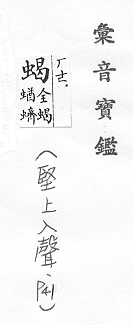 彙音寶鑑
ㄏㄜ.
蝎
全蝎
蝤蠐
(堅上入聲、P41)